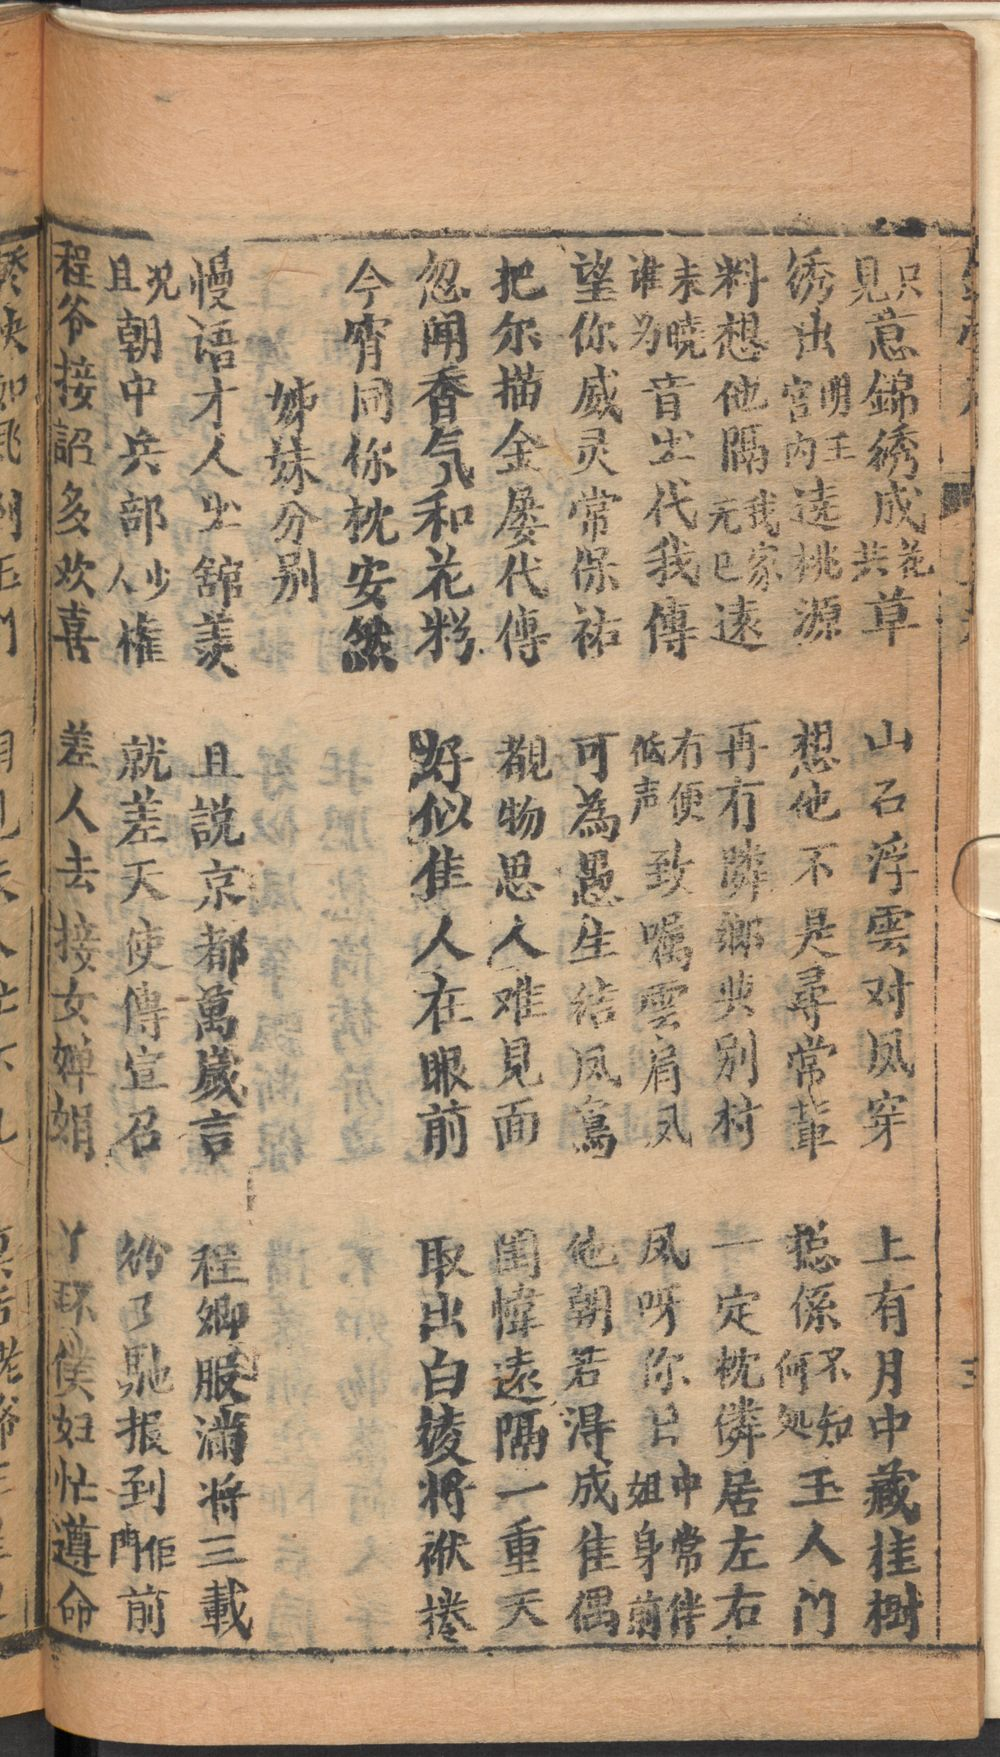 只見意錦綉成花共草 山石浮雲对凤穿 上有月中藏桂樹
绣出明王宮内逺桃源 想他不是尋常輩 揔係不知何処玉人門
料想他隔我家元巴逺 再有隣鄉與别村 一定枕憐居左右
未曉谁为音出代我傳 有便低声致嘱雲肩凤 凤呀你日中常伴姐身前
望你威灵常保祐 可為愚生结凤鳥 他朝若得成隹偶
把尔描金屡代傳 覩物思人难見面 闺幃遠隔一重天
忽闻香气和花粉 好似隹人在眼前 取出白绫将袱捲
今宵同你枕安然
姊妹分别
慢语才人出舘羙 且説京都萬嵗言 程卿服滿将三載
况且朝中兵部少人權 就差天使傳宣召 纷了馳报到佢門前
程爷接詔多欢喜 差人去接女婵娟 丫环僕妇忙遵命